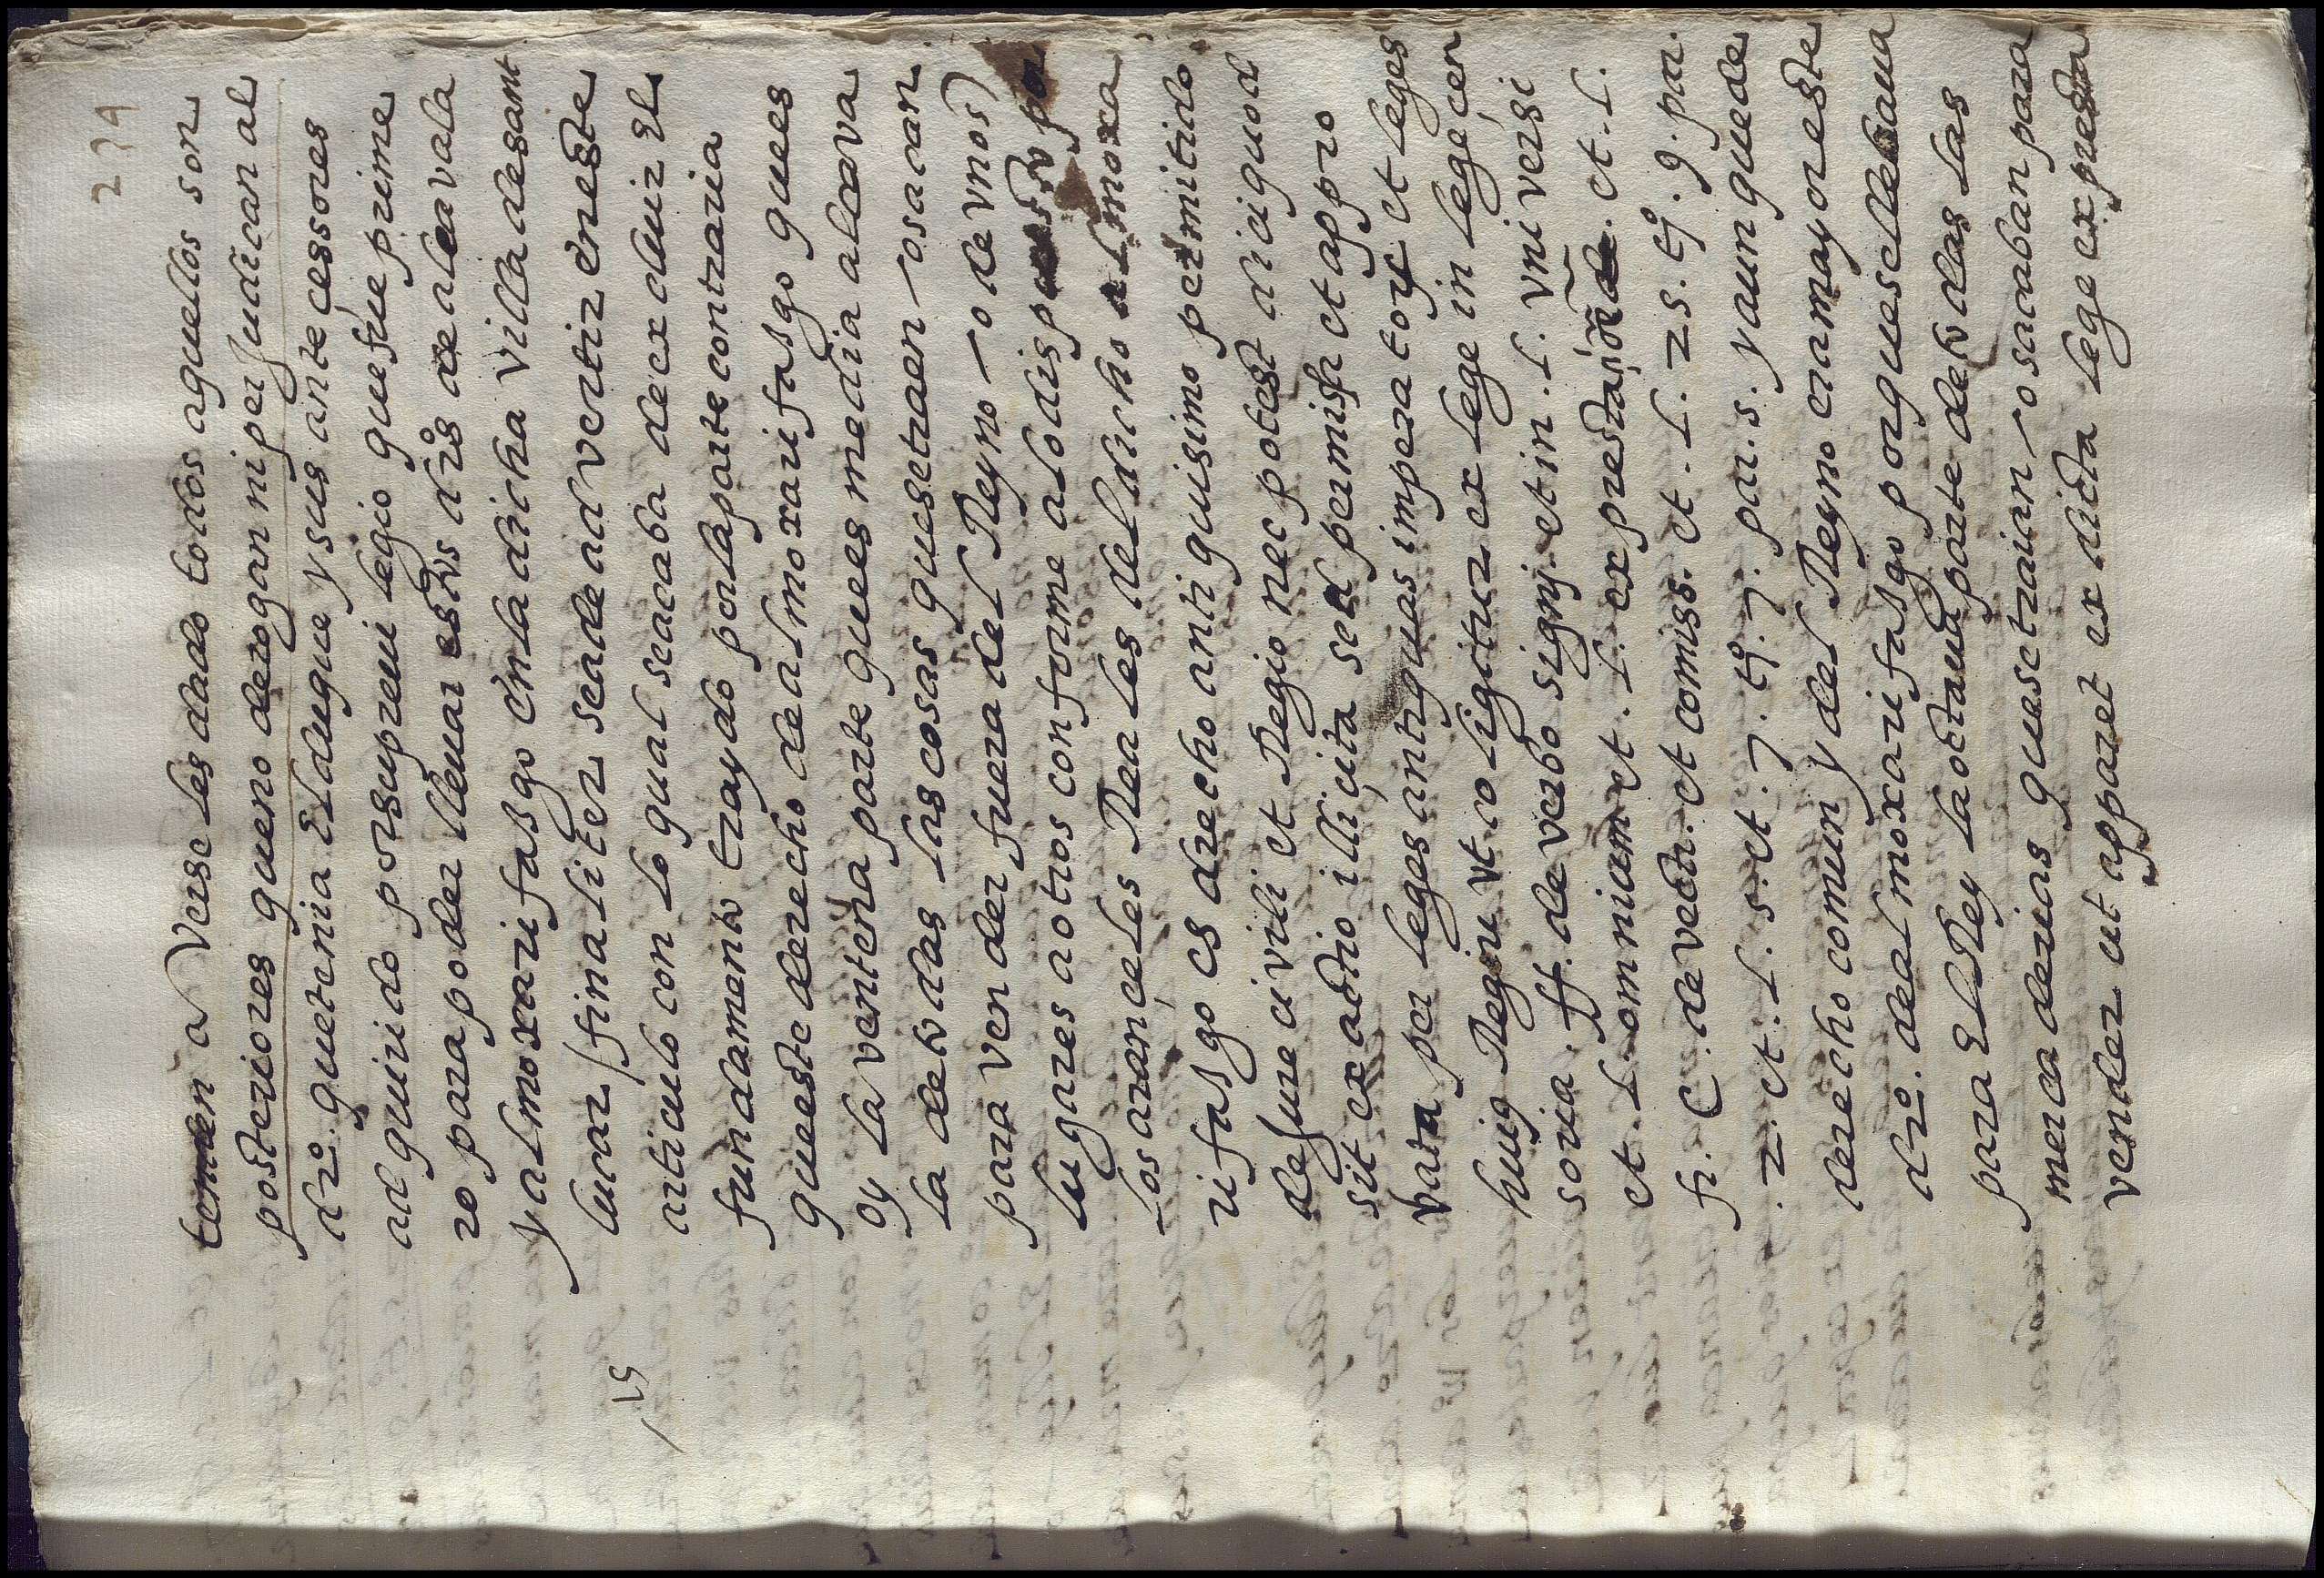 279
temen a verse les dado todos aquellos son
posteriores que no derogan ni perjudican al
dro. que tenia El duque y sus anteçessores
adquirido por su preui legio que fue prime
ro para poder lleuar estos dros de alcavala
y almoxarifasgo en la dicha villa de sant
lucar / finaliter se a de advertir en este
articulo con lo qual se acaba de excluir El
fundamento traydo por la parte contraria
que este derecho de almoxarifasgo que es
oy la ventena parte que es media alcava
la de todas las cosas que se traen ~ o sacan
para vender fuera del Reyno ~ o de vnos)
lugares a otros conforme a lo dispuesto por
los arançeles Reales del dicho almoxa
rifasgo es drecho antiguisimo permitido
de Jure civili et Regio nec potest dici quod
sit exactio illiçita sed permissa et appro
vata per leges antiguas imperatorū et leges
huiq Regni vt coligitur ex lege in lege çen
soria. ff. de verbo signi. et in. l. vniversi
et. l. omnium et. l. ex prestaiōe. et. l.
fi. C. de vecti. et comiss. et. l. 25. tj°. 9. par.
. 2. et. l. 5. et. 7. tj°. 7. par. 5. y aunque de
derecho comun y del Reyno era mayor este
dro. de almoxarifasgo porque se llebaua
para El Rey la octaua parte de todas las
mercaderias que se traian ~ o sacaban para
vender ut apparet ex dicta lege ex presta
/15